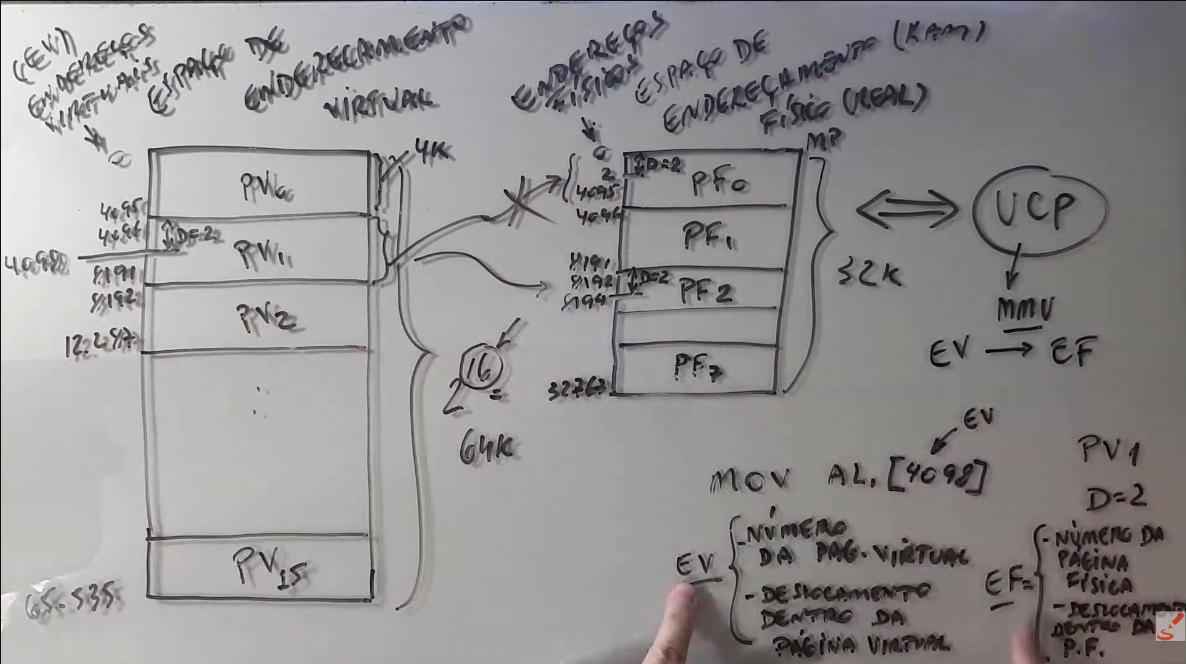 (EV)
ENDEREÇOS
VIRTUAIS
ESPAÇO DE
ENDEREÇAMENTO
VIRTUAL
0
PV0
4K
4095
4096
D=2
4098
PV1
8191
8192
PV2
12.287
PV15
65.535
2 16 =
64K
ENDEREÇOS
FÍSICOS
ESPAÇO DE
ENDEREÇAMENTO (RAM)
FÍSICO (REAL)
MP
0
2
D=2
4095
PF0
4096
PF1
8191
8192
D=2
8194
PF2
PF7
32767
32K
UCP
MMU
EV → EF
EV
MOV AL, [4098]
PV1
D=2
EV
- NÚMERO
DA PAG. VIRTUAL
- DESLOCAMENTO
DENTRO DA
PÁGINA VIRTUAL
EF=
- NÚMERO DA
PÁGINA
FÍSICA
- DESLOCAMENTO
DENTRO DA
P.F.